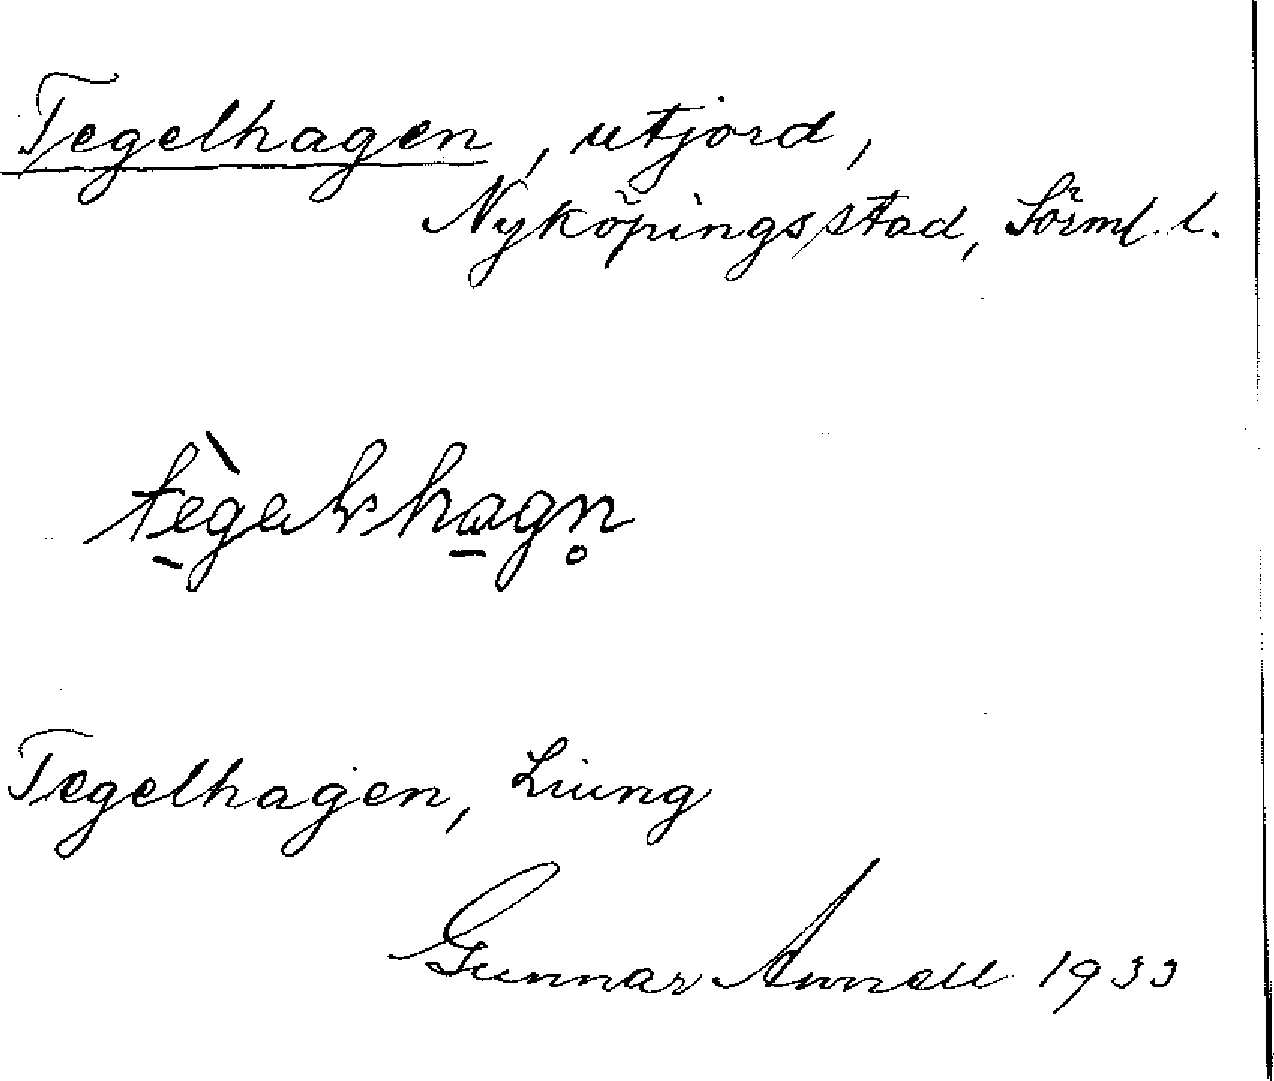 Tegelhagen, utjord,
Nyköpings stad, Sörml. l.
Tegelhagen, Liung
Gunnar Annell 1933